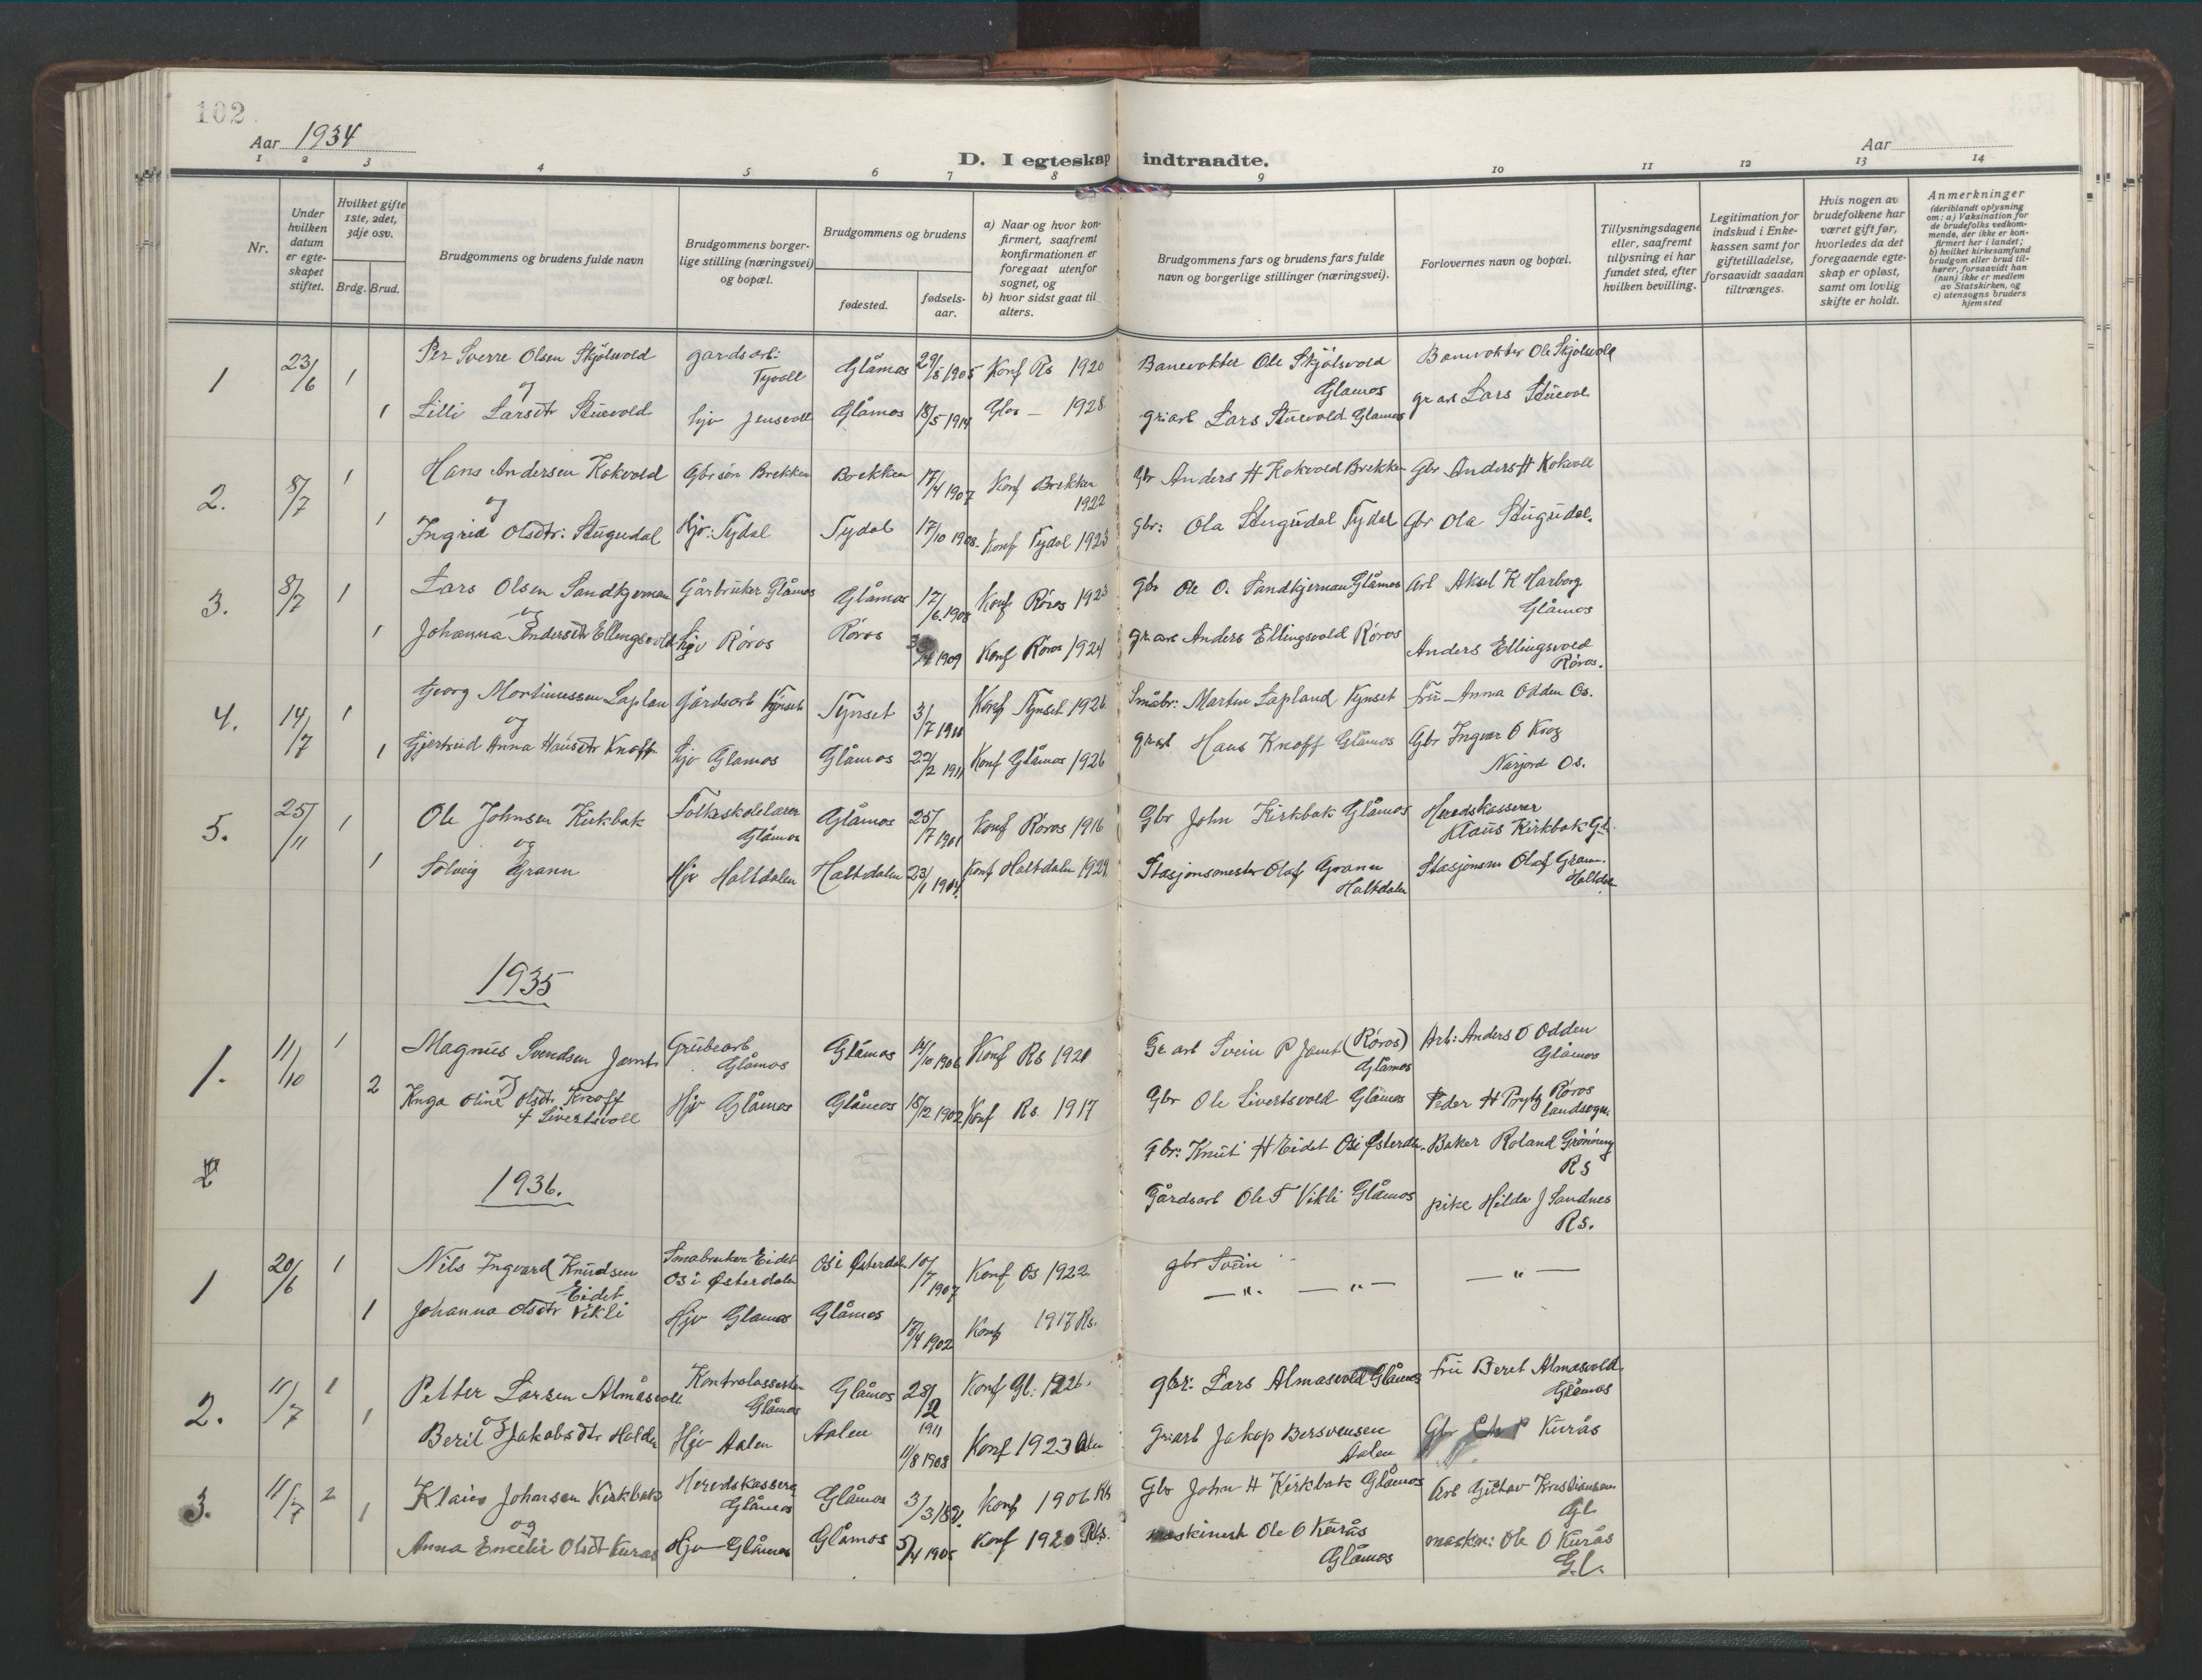 102
Aar 1934
D. I egteskap indtraadte.
Aar
1 2 3 4 5 6 7 8 9 10 11 12 13 14
Nr.
Under hvilken datum er egteskapet stiftet.
Hvilket gifte 1ste, 2det, 3dje osv.
Brdg. Brud.
Brudgommens og brudens fulde navn
Brudgommens borgerlige stilling (næringsvei) og bopæl.
Brudgommens og brudens
fødested.
fødselsaar.
a) Naar og hvor konfirmert, saafremt konfirmationen er foregaat utenfor sognet, og
b) hvor sidst gaat til alters.
Brudgommens fars og brudens fars fulde navn og borgerlige stillinger (næringsvei).
Forlovernes navn og bopæl.
Tillysningsdagene eller, saafremt tillysning ei har fundet sted, efter hvilken bevilling.
Legitimation for indskud i Enkekassen samt for giftetilladelse, forsaavidt saadan tiltrænges.
Hvis nogen av brudefolkene har været gift før, hvorledes da det foregaaende egteskap er opløst, samt om lovlig skifte er holdt.
Anmerkninger
(deriblandt oplysning om: a) Vaksination for de brudefolks vedkommende, der ikke er konfirmert her i landet; b) hvilket kirkesamfund brudgom eller brud tilhører, forsaavidt han (hun) ikke er medlem av Statskirken, og c) utensogns bruders hjemsted
1 23/6 1 Per Sverre Olsen Skjølsvold gardsarb: Tyvoll Glåmos 29/5 1905 Konf Rs 1920 Banevokter Ole Skjølsvold Glamos Banevokter Ole Skjølsvold
og
1 Lilli Larsdtr Stuevold hjv Jensvoll Glåmos 18/5 1914 Glos — 1928 gr:arb Lars Stuevold Glamos gr arb Lars Stuevol
2. 8/7 1 Hans Andersen Kokvold Gbr søn Brekken Brekken 17/4 1907 Konf Brekken 1922 Gbr Anders H Kokvold Brekken Gbr Anders H Kokvoll
og
1 Ingrid Olsdtr: Stugudal Hjv: Tydal Tydal 17/10 1908. Konf Tydal 1923 Gbr: Ola Stugudal Tydal Gbr Ola Stugudal.
3. 8/7 1 Lars Olsen Sandkjernan Gårbruker Glåmos Glåmos 17/6 1908 Konf Røros 1923 Gbr Ole O. Sandkjernan Glåmos Arb Aksel K Harborg Glåmos
og
1 Johanna Andersdtr Ellingsvold hjv Røros Røros 1909 Konf Røros 1924 gr arb Anders Ellingsvold Røros Anders Ellingsvold Røros.
4. 14/7 1 Georg Martinussen Laplan Gårdsarb Tynset Tynset 3/7 1911 Konf Tynset 1926 Småbr: Martin Lapland Tynset Fru Anna Odden Os.
og
1 Gjertrud Anna Hansdtr Knoff hjv Glamos Glåmos 22/2 1911 Konf Glåmos 1926 gr arb Hans Knoff Glåmos Gbr Ingvar O Krog Narjord Os.
5. 25/11 1 Ole Johnsen Kirkbak Folkeskolelærer Glåmos Glåmos 25/7 1901 Konf Røros 1916 Gbr John Kirkbak Glåmos Heredskasserer Klaus Kirkbak Gl.
og
1 Solveig Grann Hjv Haltdalen Haltdalen 23/11 1904. Konf Haltdalen 1929 Stasjonsmester Olaf Grann Haltdalen Stasjonsm Olaf Grann. Haltdal
1935
1. 11/10 1 Magnus Svendsen Jamt. Grubearb Glåmos Glåmos 14/10 1906 Konf Rs 1921 Gr arb Svein P Jamt (Røros) Glåmos Arb: Anders O Odden Glåmos
og
2 Inga Oline Olsdtr Knoff f Sivertsvoll Hjv Glåmos Glåmos 18/12 1902 Konf Rs. 1917 Gbr Ole Sivertsvold Glåmos Peder H Prytz Røros landsogn
2
Gbr: Knut H Eidet Os i Østerda. Baker Roland Grønning Rs
1936.
Gårdsarb Ole T Vikli Glåmos pike Hilda J Sandnes Rs.
1 20/6 1 Nils Ingvard Knudsen Eidet Smabruker Eidet Os i Østerdalen Os i Østerdal 10/7 1907 Konf Os 1922 gbr Svein
— " — — " — — " —
1 Johanna Olsdtr Vikli Hjv Glamos Glåmos 18/4 1902 Konf 1917 Rs.
2. 11/7 1 Petter Larsen Almåsvoll Kontrolassisten Glåmos Glåmos 28/12 1911 Konf Gl: 1926. gbr: Lars Almasvold Glåmos Fru Beret Almasvold Glåmos
og
1 Berit Jakobsdtr Holden Hjv Aalen Aalen 11/8 1908 Konf 1923 Alen Gr:arb Jakop Bersvensen Aalen Gbr P Kurås
3. 11/7 2 Klaus Johansen Kirkbak Heredskasserer Glåmos Glåmos 3/3 1892. Konf 1906 Rs Gbr John H Kirkbak Glåmos Arb Gustav Kristiansen Gl.
og
1 Anna Emelie Olsdt Kuras Hjv Glåmos Glåmos 5/4 1905 Konf 1920 Rs. maskinist Ole O Kurås Glåmos maskin: Ole O Kurås Gl.